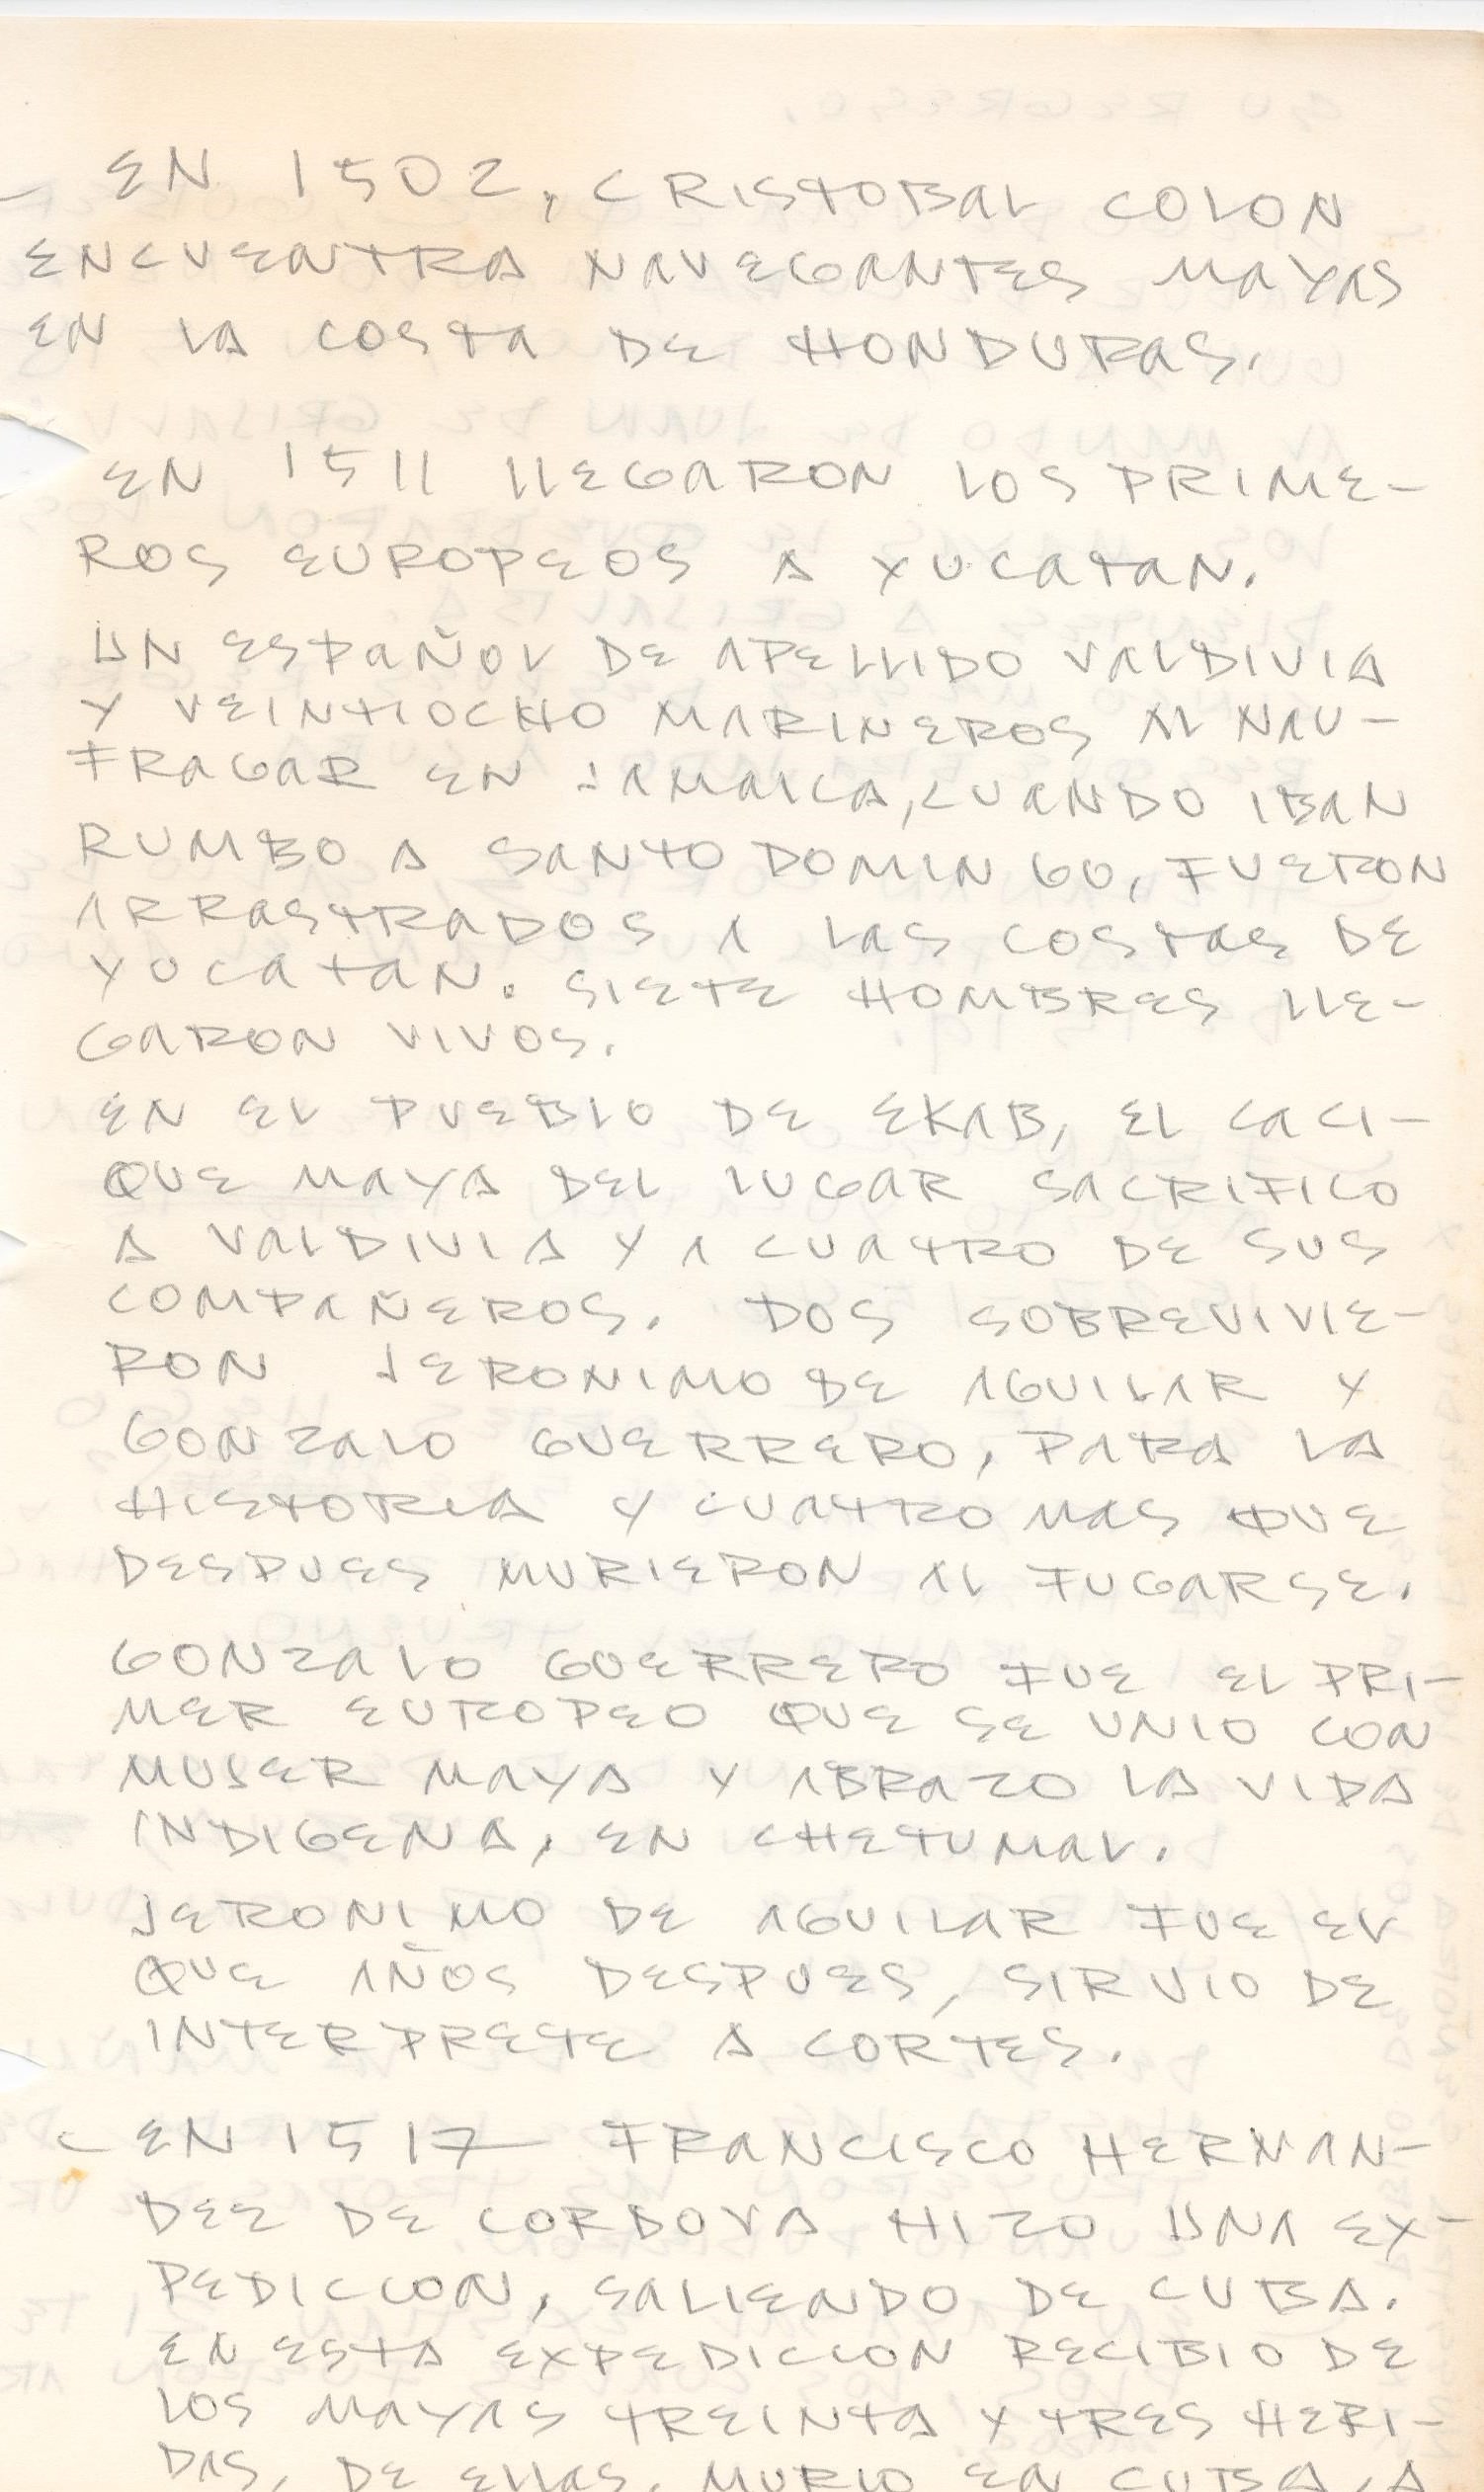 EN 1502, CRISTOBAL COLON
ENCUENTRA NAVEGANTES MAYAS
EN LA COSTA DE HONDURAS.
EN 1511 LLEGARON LOS PRIME-
ROS EUROPEOS A YUCATAN.
UN ESPAÑOL DE APELLIDO VALDIVIA
Y VEINTIOCHO MARINEROS AL NAU-
FRAGAR EN JAMAICA, CUANDO IBAN
RUMBO A SANTO DOMINGO, FUERON
ARRASTRADOS A LAS COSTAS DE
YUCATAN. SIETE HOMBRES LLE-
GARON VIVOS.
EN EL PUEBLO DE EKAB, EL CACI-
QUE MAYA DEL LUGAR SACRIFICO
A VALDIVIA Y A CUATRO DE SUS
COMPAÑEROS. DOS SOBREVIVIE-
RON JERONIMO DE AGUILAR Y
GONZALO GUERRERO, PARA LA
HISTORIA Y CUATRO MAS QUE
DESPUES MURIERON AL FUGARSE.
GONZALO GUERRERO FUE EL PRI-
MER EUROPEO QUE SE UNIO CON
MUJER MAYA Y ABRAZO LA VIDA
INDIGENA, EN CHETUMAL.
JERONIMO DE AGUILAR FUE EL
QUE AÑOS DESPUES, SIRVIO DE
INTERPRETE A CORTES.
EN 1517 FRANCISCO HERNAN-
DEZ DE CORDOVA HIZO UNA EX-
PEDICCION, SALIENDO DE CUBA.
EN ESTA EXPEDICCION RECIBIO DE
LOS MAYAS TREINTA Y TRES HERI-
DAS, DE ELLAS, MURIO EN CUBA, A